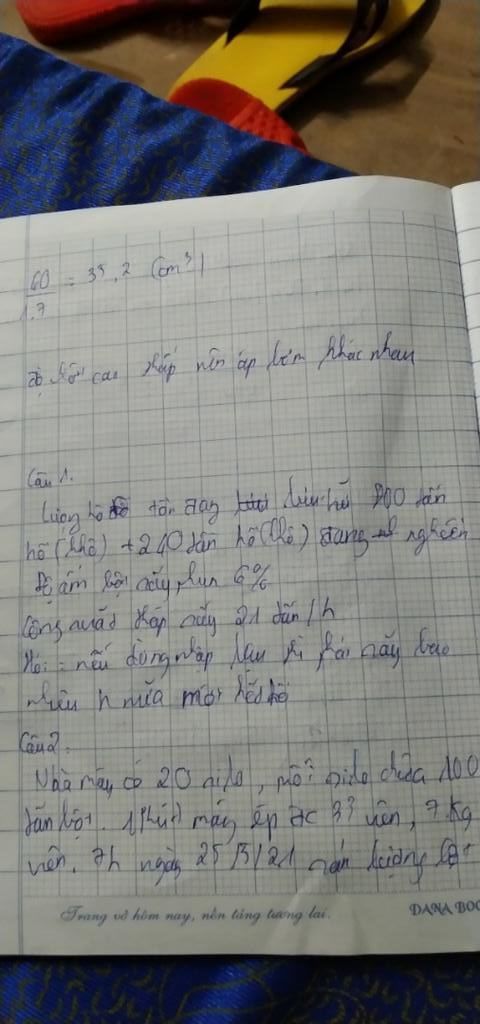 60
1.7 = 35,2 (cm³)
cao thấp nên áp bơm khác nhau
Câu 1.
Lượng hồ tồn đang lưu trữ 200 tấn
hồ (khô) + 240 tấn hồ (khô) đang nghiền
Độ ẩm bột sấy phun 6%
Công suất tháp sấy 21 tấn/h
Hỏi: nếu dừng nhập thì phải sấy bao
nhiêu h nữa mới hết hồ
Câu 2.
Nhà máy có 20 silo, mỗi silo chứa 100
tấn bột. 1 phút máy ép đc 33 viên, 7 kg
viên. 7h ngày 25/3/21 lượng
Trang vở hôm nay, nền tảng tương lai.
DANA BOO